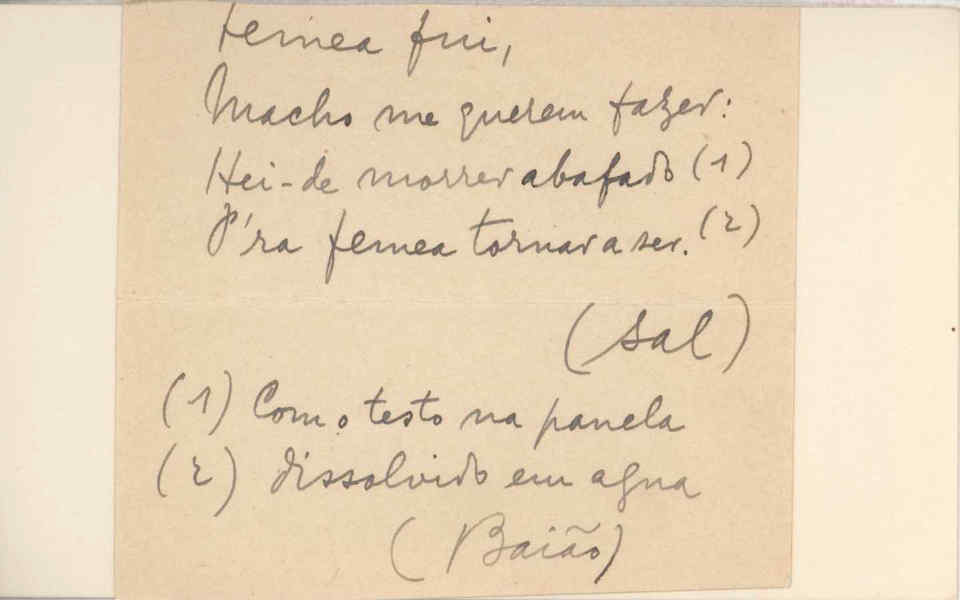 femea fui,
Macho me querem fazer:
Hei-de morrer abafado (1)
P'ra femea tornar a ser. (2)
(Sal)
(1) Com o testo na panela
(2) dissolvido em agua
(Baião)